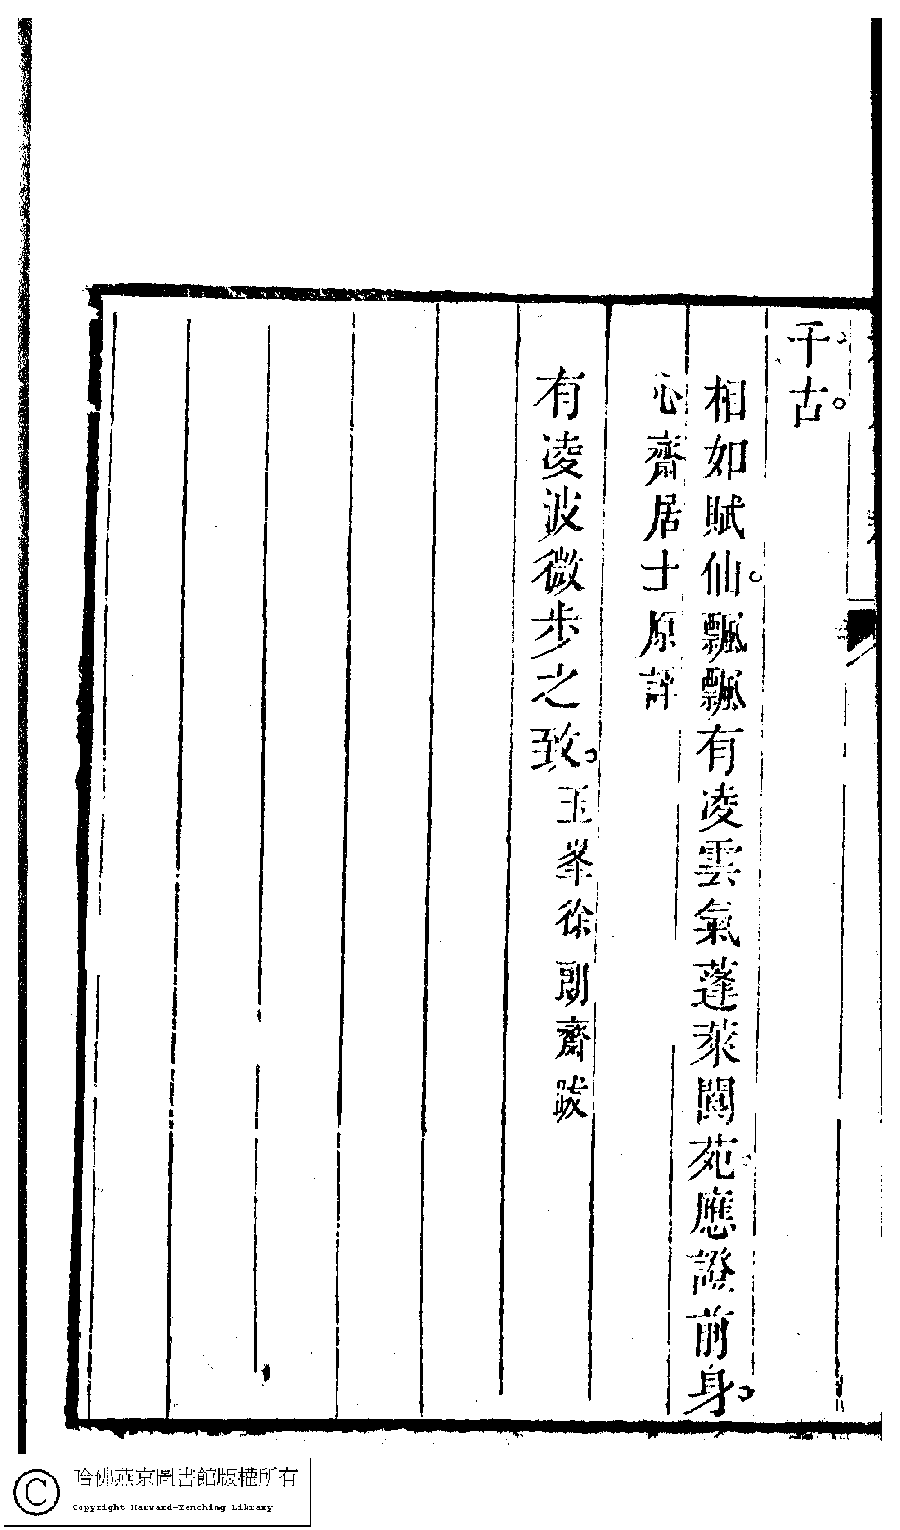 千古。
相如賦仙。飄飄有凌雲氣蓬萊閬苑應證前身。
心齋居士原評
有凌波微步之致。玉峯徐朗齋跋
哈佛燕京圖書館版權所有
Copyright Harvard-Yenching Library